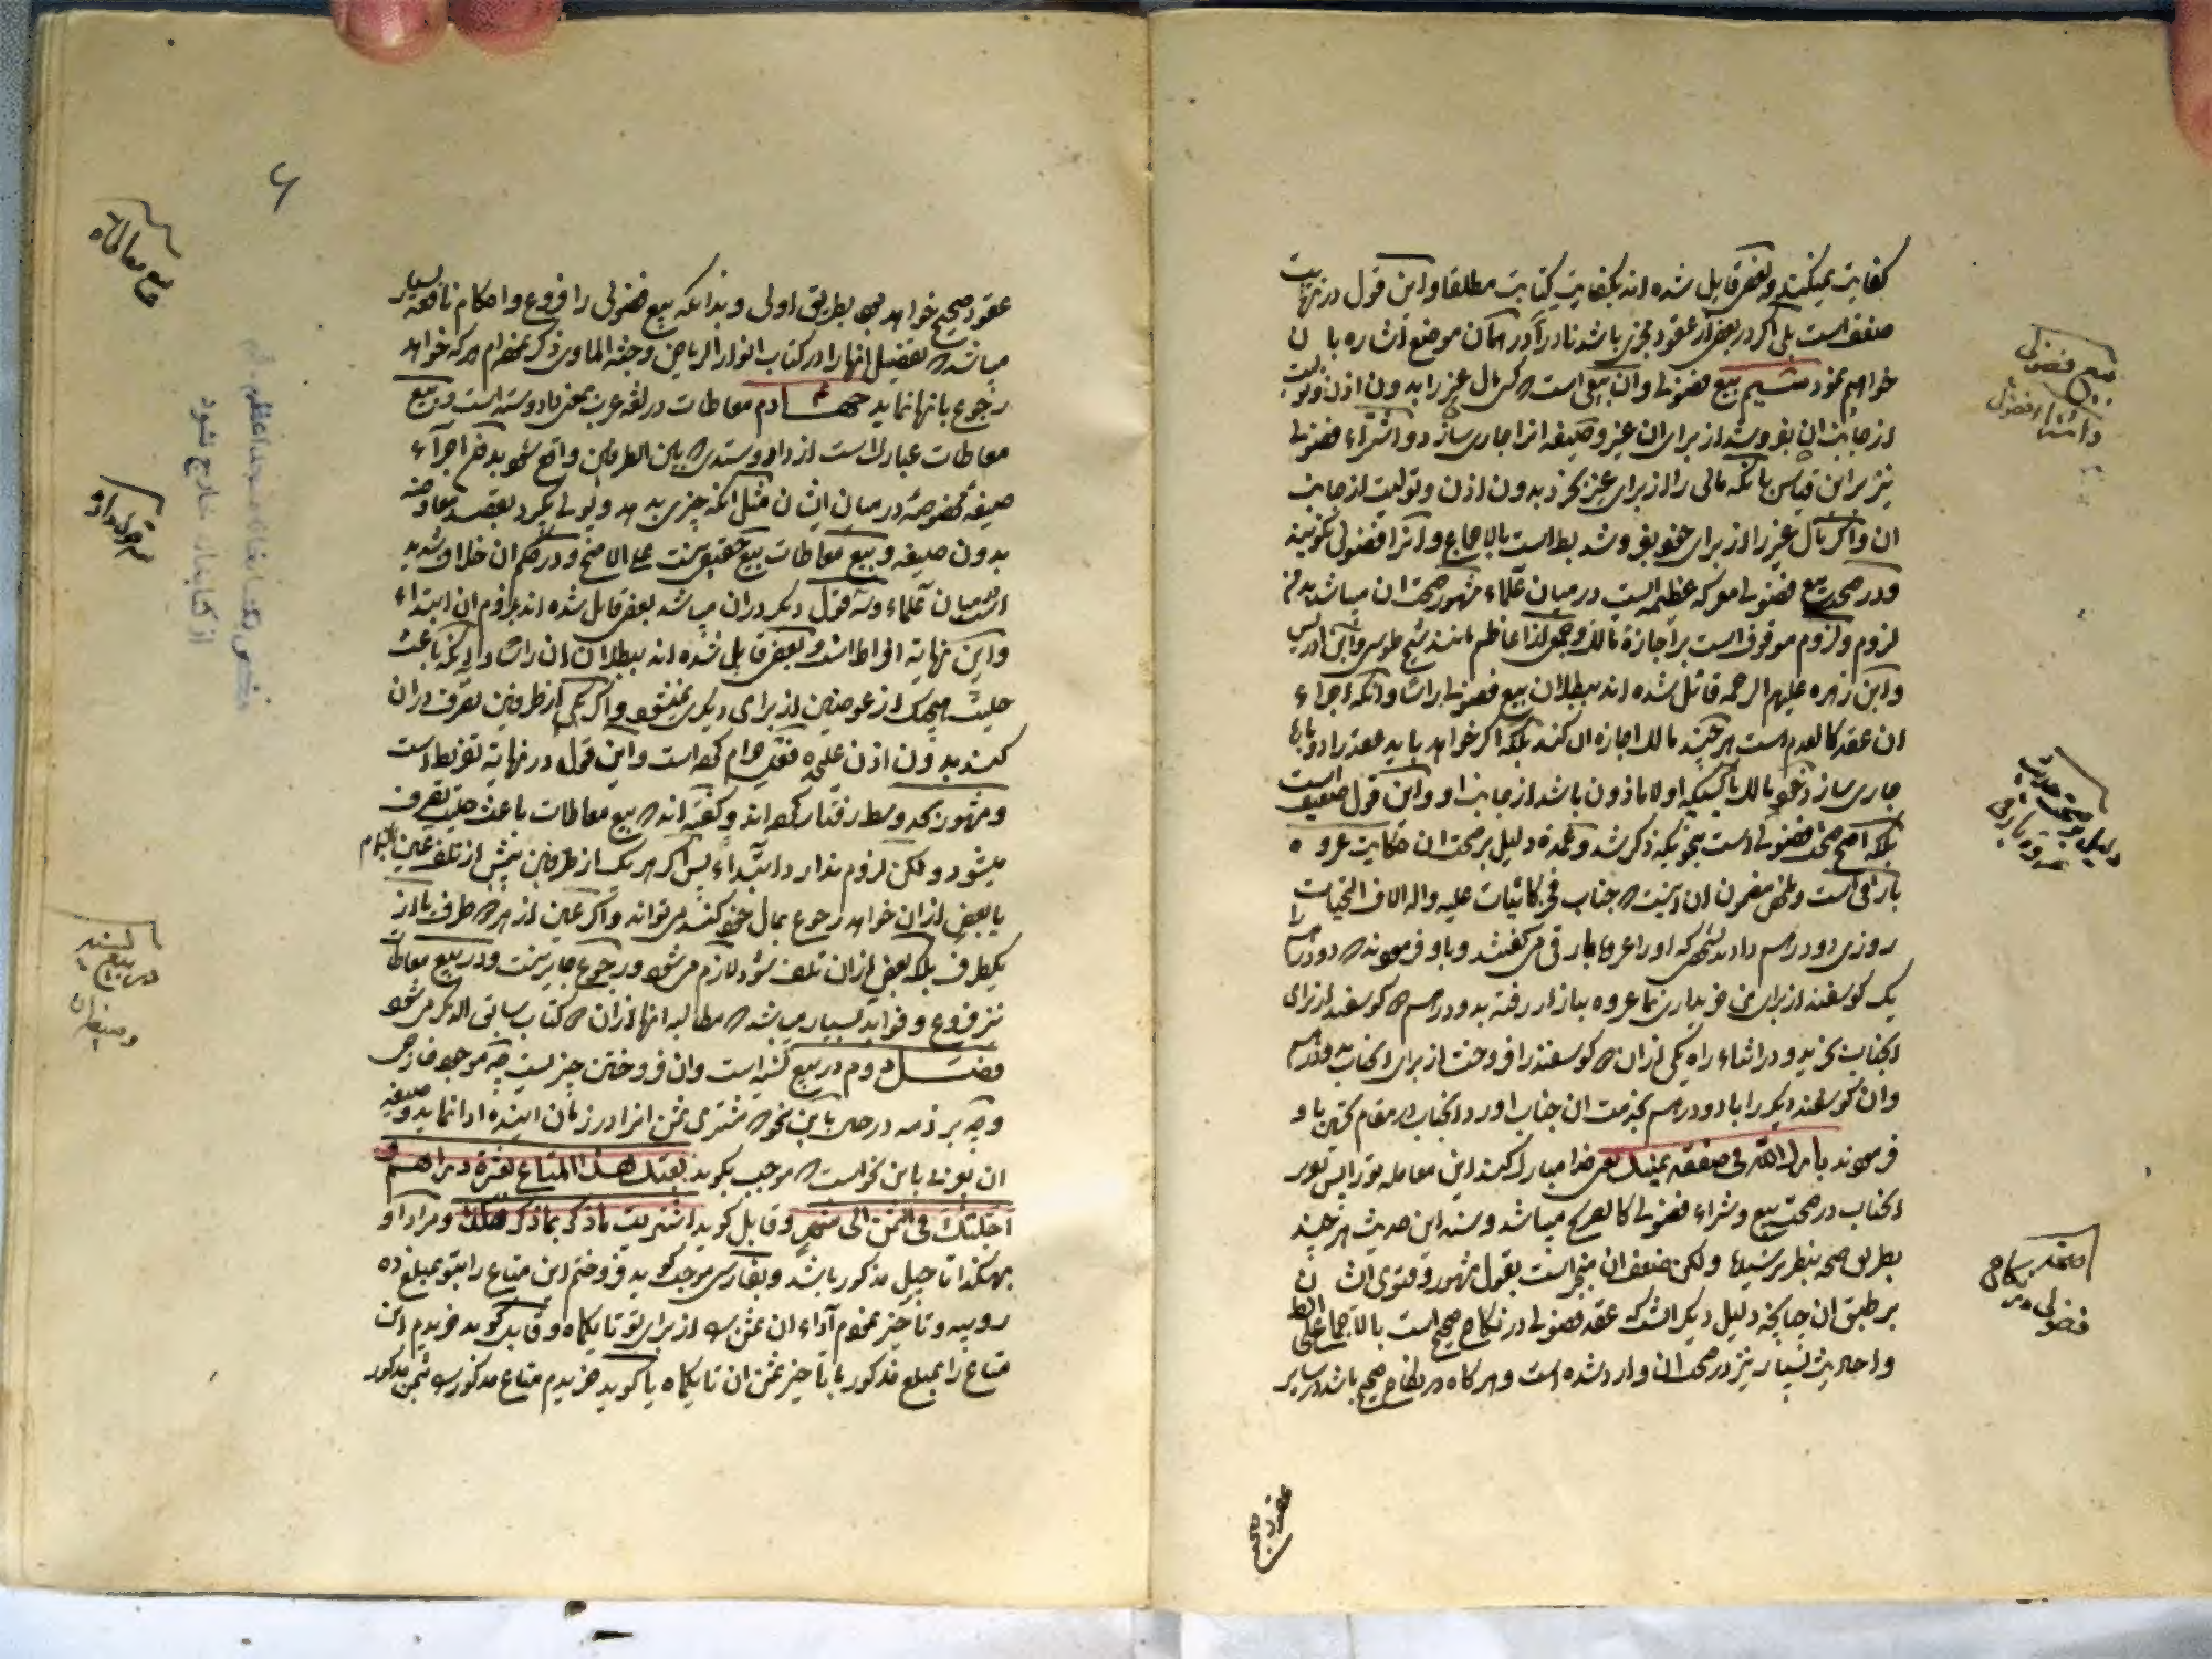 کفایت نمیکند و بعضی قایل شده اند بکفایت کتابت مطلقا و این قول در نهایت
ضعف است بلی اگر در بعضی از عقود مجزی باشد نادراً در همان موضع اشاره بآن
خواهم نمود ششم بیع فضولی و آن بیعی است که کسی مال غیر را بدون اذن و تولیت
از جانب آن بفروشد از برای آن غیر و صیغه آنرا جاری سازد و اشتراء فضولی
نیز بر این قیاس بآنکه مالی را از برای غیر بخرد بدون اذن و تولیت از جانب
آن و اگر مال غیر را از برای خود بفروشد بط است بالاجماع و آنرا فضولی نگویند
و در صحت بیع فضولی معرکه عظیمه ایست در میان علماء مشهور صحت آن میباشد بدون
لزوم و لزوم موقوف است بر اجازه مالک و جمعی از اعاظم مانند شیخ طوسی و ابن ادریس
و ابن زهره علیهم الرحمه قائل شده اند ببطلان بیع فضولی راسا و آنکه اجراء
آن عقد کالعدم است هر چند مالک اجازه آن کند بلکه اگر خواهد باید عقد را دوباره
جاری سازد خود مالک یا کسیکه اولا ماذون باشد از جانب او و این قول ضعیف است
بلکه اصح صحت فضولی است بنحویکه ذکر شد و عمده دلیل بر صحت آن حکایت عروه
بارقی است و ملخص مضمون آن اینست که جناب فخر کائنات علیه و آله آلاف التحیات
روزی دو درهم دادند بشخصی که او را عروه بارقی می گفتند و باو فرمودند که دو درهم را
یک گوسفند از برای من خریداری نما عروه ببازار رفته بدو درهم دو گوسفند از برای
آنجناب بخرید و در اثناء راه یکی از آن دو گوسفند را فروخت از برای آنجناب بدو درهم
و آن گوسفند دیگر را با دو درهم بخدمت آن جناب آورد و آنجناب در مقام تحسین باو
فرمودند بارک الله فی صفقة یمینک یعنی خدا مبارک کند این معامله تو را پس تقریر
آنجناب در صحت بیع و شراء فضولی کالصریح میباشد و سند این حدیث هر چند
بطریق صحه بنظر نرسیده و لکن ضعف آن منجبر است بقول مشهور و فتوی ایشان
بر طبق آن چنانچه دلیل دیگر آنست که عقد فضولی در نکاح صحیح است بالاجماع علی الظ
و احادیث بسیار نیز در صحت آن وارد شده است و هر گاه در نکاح صحیح باشد در سایر
بیع فضولی
عقود صحیح
۶
عقود صحیح خواهد بود بطریق اولی و بدانکه بیع فضولی را فروع و احکام نافعه بسیار
میباشد که تفصیل آنها را در کتاب انوار الریاض و جنة الماوی ذکر نموده‌ام هر که خواهد
رجوع بآنها نماید چهارم معاطات در لغة عرب بمعنی داد و ستد است و بیع
معاطات عبارت است از داد و ستدی که بین الطرفین واقع شود بدون اجراء
صیغه مخصوصه در میان ایشان مثل آنکه چیزی بدهد و پولی بگیرد بقصد معاوضه
بدون صیغه و بیع معاطات بیع حقیقی نیست علی الاصح و در حکم آن خلاف شدید
در میان علماء و سه قول دیگر در آن میباشد بعضی قایل شده اند بلزوم آن ابتداء
و این نهایة افراط است و بعضی قایل شده اند ببطلان آن راسا و اینکه باعث
حلیت هیچیک از عوضین از برای دیگری نمیشود و اگر یکی از طرفین تصرف در آن
کند بدون اذن علیحده فعل حرام کرده است و این قول در نهایة تفریط است
و مشهور بحد وسط رفتار کرده اند و گفته اند که بیع معاطات باعث حلیت تصرف
میشود و لکن لزوم ندارد ابتداءً پس اگر هر یک از طرفین پیش از تلف عین تمام
یا بعض از آن خواهد رجوع بمال خود کند می تواند و اگر عین از هر دو طرف یا از
یکطرف بلکه بعض از آن تلف شود لازم می شود و رجوع جایز نیست و در بیع معاطات
نیز فروع و فواید بسیار میباشد که مطالبه آنها از آن دو کتاب سابق الذکر می شود
فصل دوم در بیع نسیه است و آن فروختن چیزیست چه موجود خارجی
و چه بر ذمه در حال باین نحو که مشتری ثمن آنرا در زمان آینده ادا نماید و صیغه
آن بعربی باین نحو است که موجب بگوید بعتک هذا المتاع بعشرة دراهم و
اجلتک فی الثمن الی شهر و قابل گوید اشتریت ما ذکر بما ذکر هکذا و مراد او
بهکذا تاجیل مذکور باشد و بفارسی موجب گوید فروختم این متاع را بتو بمبلغ ده
روپیه و تاخیر نمودم آداء آن ثمن را از برای تو تا یکماه و قابل گوید خریدم این
متاع را بمبلغ مذکور با تاخیر ثمن آن تا یکماه یا گوید خریدم متاع مذکور را بثمن مذکور